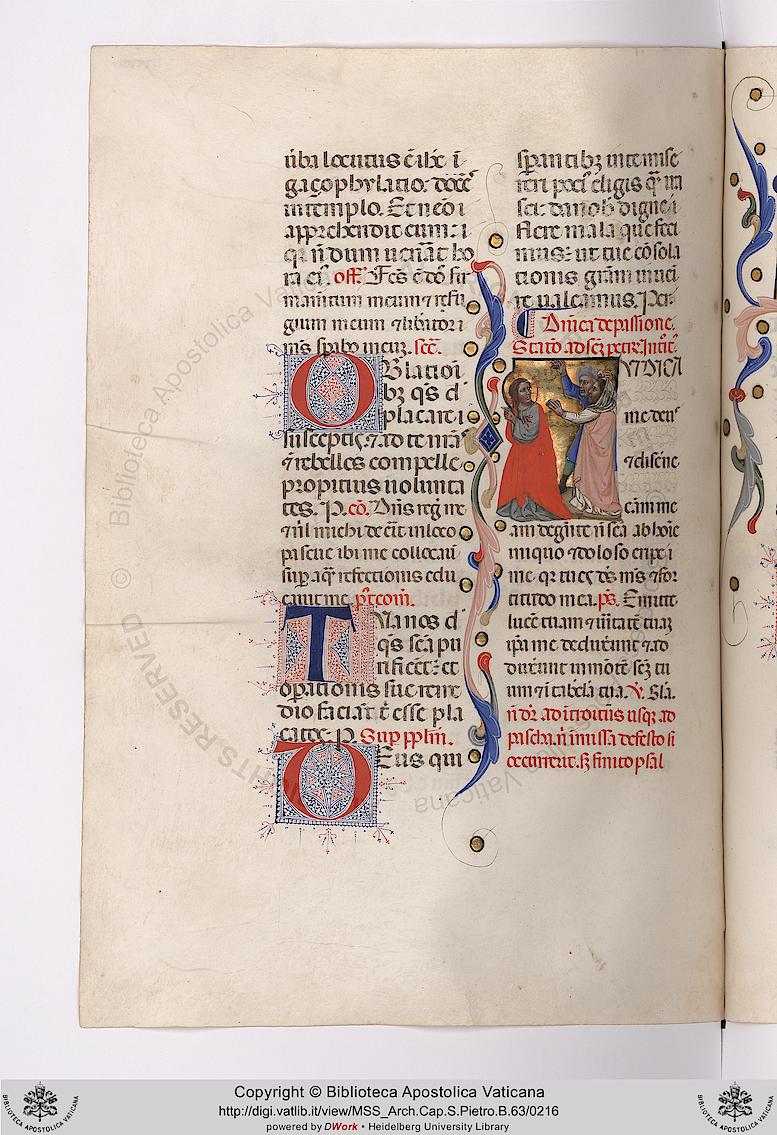 locutus
gaçophylatio: docēs
in templo. Et nēo i
apprehendit eum: i
q̄ n̄dum uenāt ho
ra eī. off. Fcs̄ ē dō fir
mamtum meum ⁊ refu
gium meum ⁊ libātor i
m̄s spabo in eū. sec̄.
Oblatioī
bꝫ q̄s d̄
placare i
susceptis. ⁊ ad te nrās
⁊ rebelles compelle
propitius uolunta
tes. P. cō. Dn̄s regit me
⁊ nl̄ michi deēit in loco
pascue ibi me collocauit
sup aq̄ refectionis edu
cauit me. p̄t com̄.
Tua nos d̄
q̄s scā pu
rificēt: et
opationis sue reme
dio faciat t̄ esse pla
catos. P. Sup pplm̄.
Deus qui
spantibꝫ in te mise
reri poti' eligis q̄ ira
sci: da nob digne i
flere mala que feci
mus: ut tue cōsola
tionis grām inueni
re ualeamus. Per
Dn̄ica de passione.
Statō ad scꝫ petrꝫ. Introit'.
IVDICA
me deus
⁊ discerne
cām me
am de gēte n̄ scā ab hoīe
iniquo ⁊ doloso eripe i
me. qr tu es ds̄ m̄s ⁊ for
titudo mea. ps̄. Emitte
lucē tuam ⁊ uītatē tuaꝫ
ip̄a me deduxerunt ⁊ ad
duxerunt in mōtē scꝫ tu
um ⁊ ī tab̄nacla tua. V̄. Gla.
n̄ dr̄. ad ītroitus usqꝫ ad
pascha. n̄ in missa de festo si
occurrerit. sꝫ finito psal
RIGHTS RESERVED © Biblioteca Apostolica Vaticana
Copyright © Biblioteca Apostolica Vaticana
http://digi.vatlib.it/view/MSS_Arch.Cap.S.Pietro.B.63/0216
powered by DWork • Heidelberg University Library
BIBLIOTECA APOSTOLICA VATICANA
BIBLIOTECA APOSTOLICA VATICANA